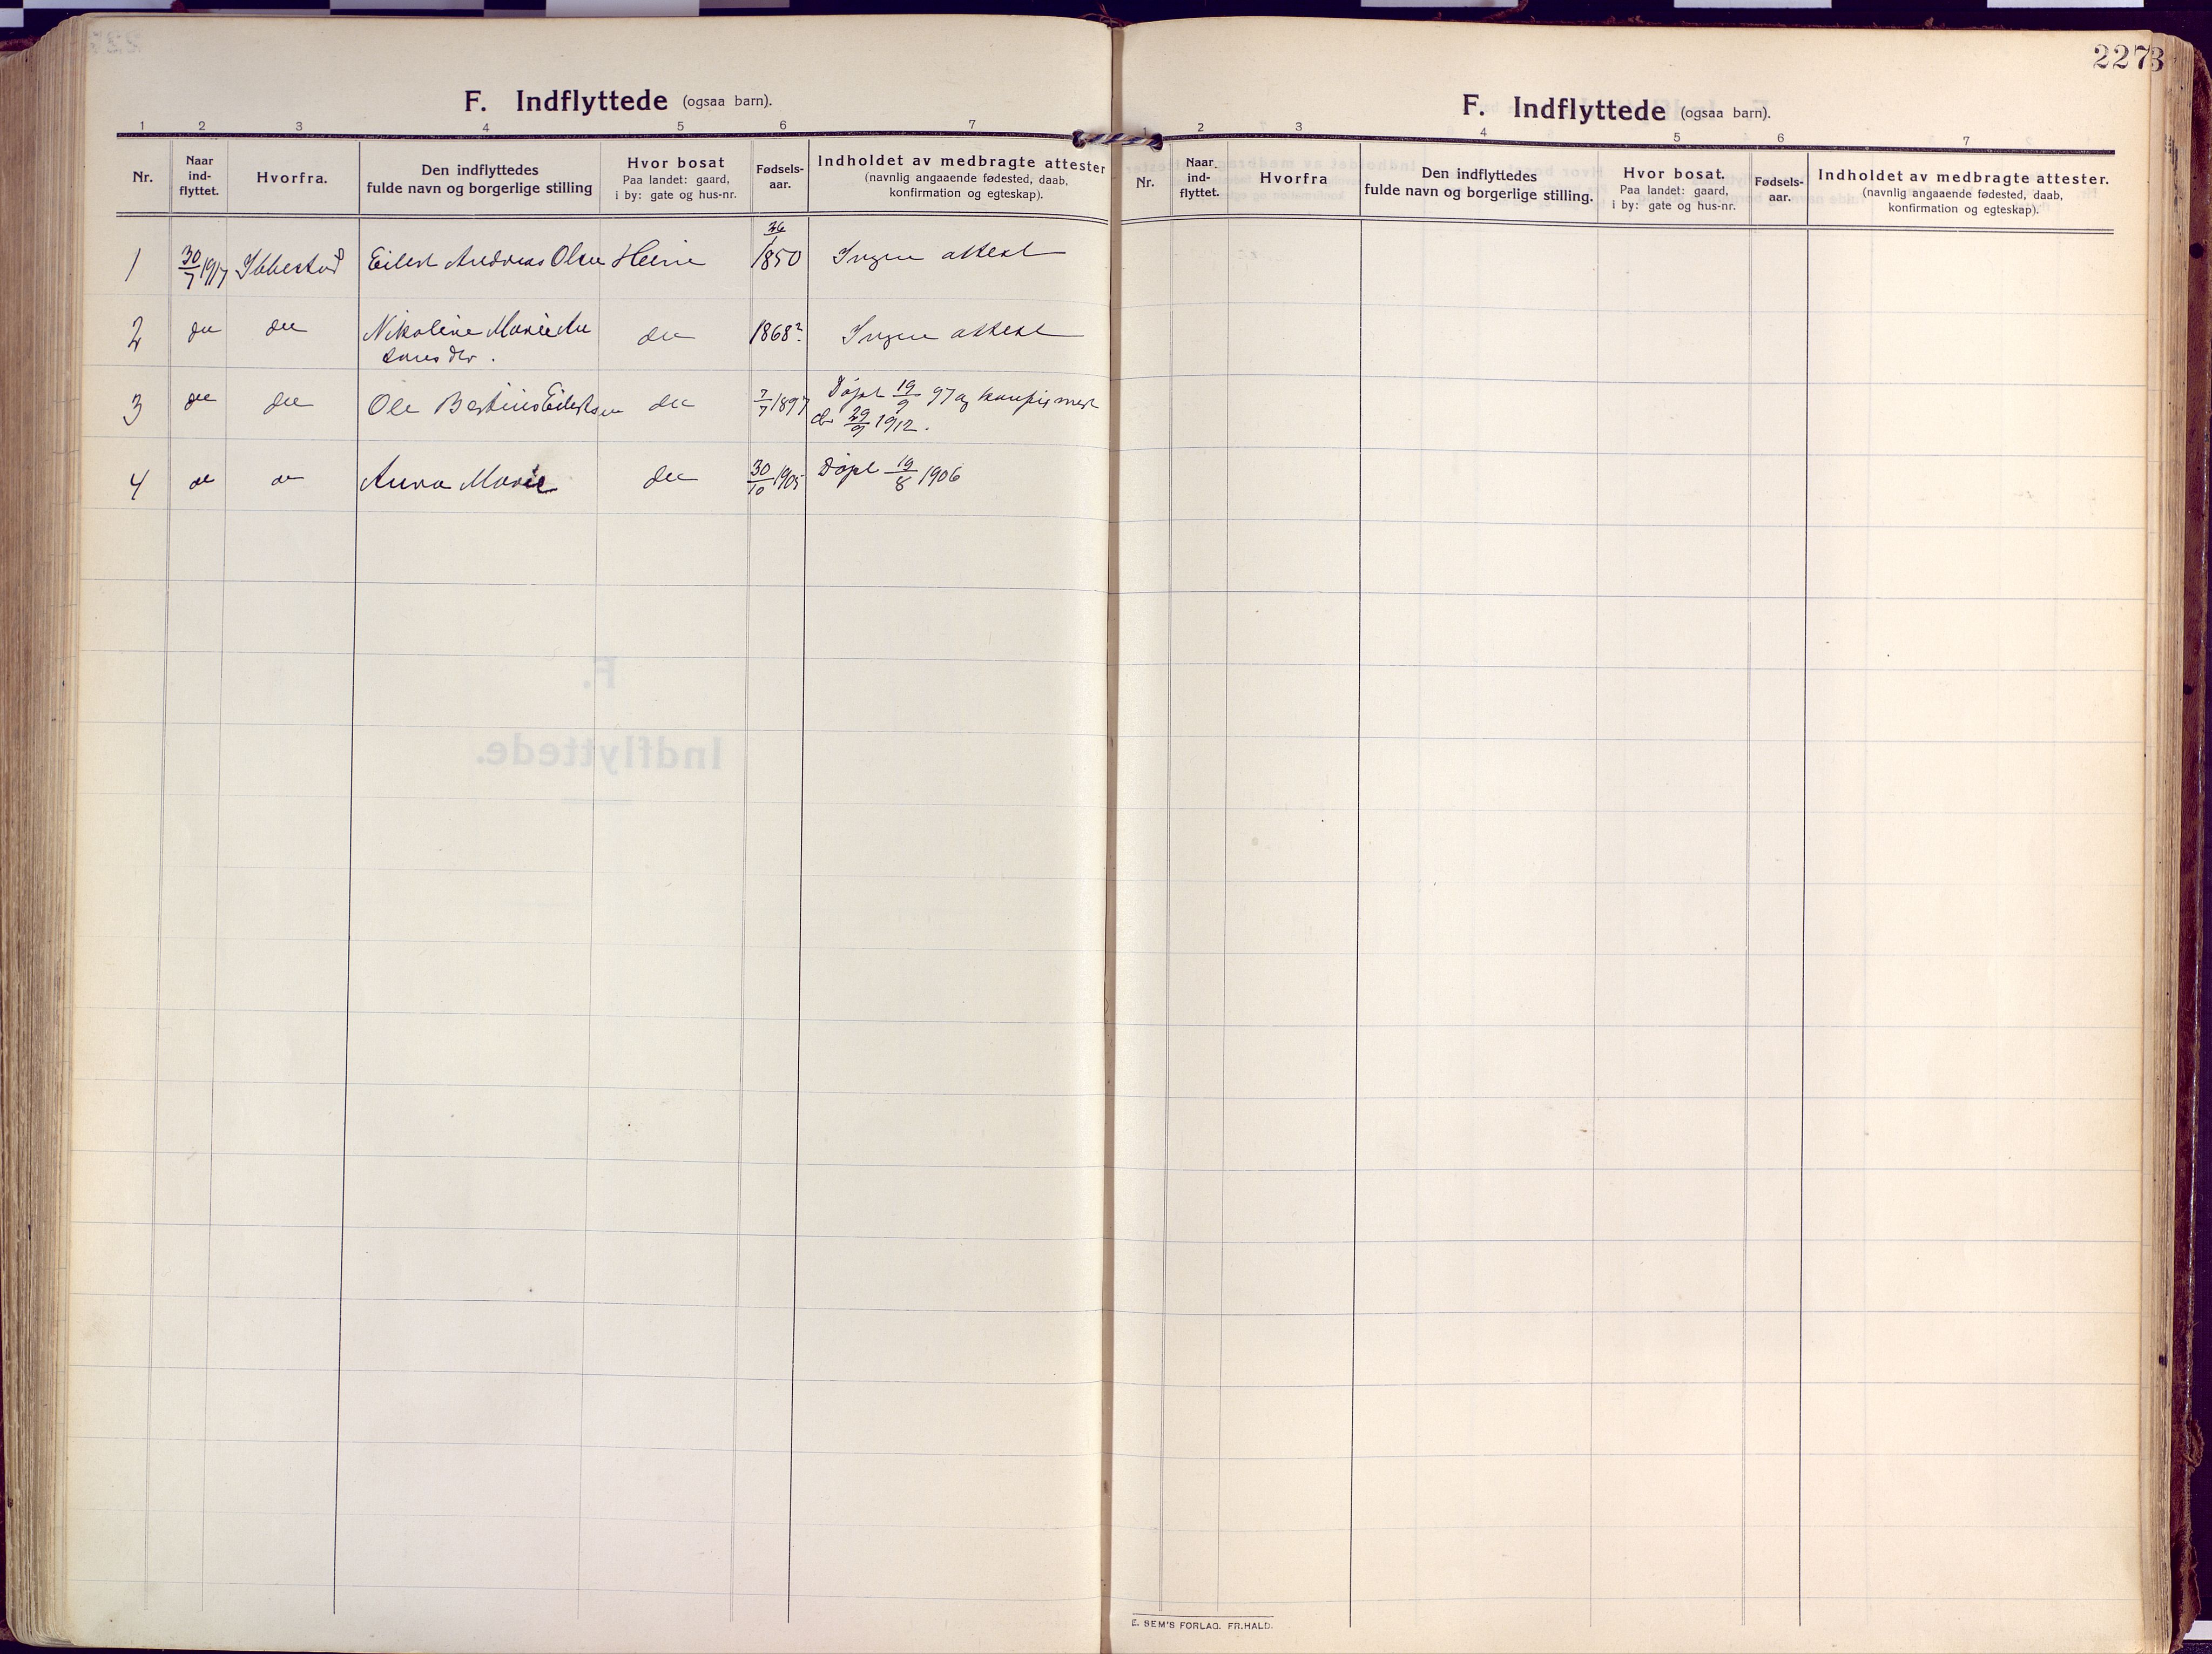 F. Indflyttede (ogsaa barn).
1 2 3 4 5 6 7
Nr. Naar ind-flyttet. Hvorfra. Den indflyttedes fulde navn og borgerlige stilling Hvor bosat Paa landet: gaard, i by: gate og hus-nr. Fødsels-aar. Indholdet av medbragte attester (navnlig angaaende fødested, daab, konfirmation og egteskap).
1 30/7 1917 Ibbestad Eilert Andreas Olsen 1850 Ingen attest
2 do do Nikoline Marie do 1868? Ingen attest
3 do do Ole Bertinus Eilertsen do 7/7 1897 Døpt 19/9 97 og konfirmert
d. 29/9 1912.
4 do do Anna Marie do 30/10 1905 Døpt 19/8 1906
227
F. Indflyttede (ogsaa barn).
1 2 3 4 5 6 7
Nr. Naar ind-flyttet. Hvorfra Den indflyttedes fulde navn og borgerlige stilling. Hvor bosat. Paa landet: gaard, i by: gate og hus-nr. Fødsels-aar. Indholdet av medbragte attester. (navnlig angaaende fødested, daab, konfirmation og egteskap).
E. SEM'S FORLAG. FR. HALD.